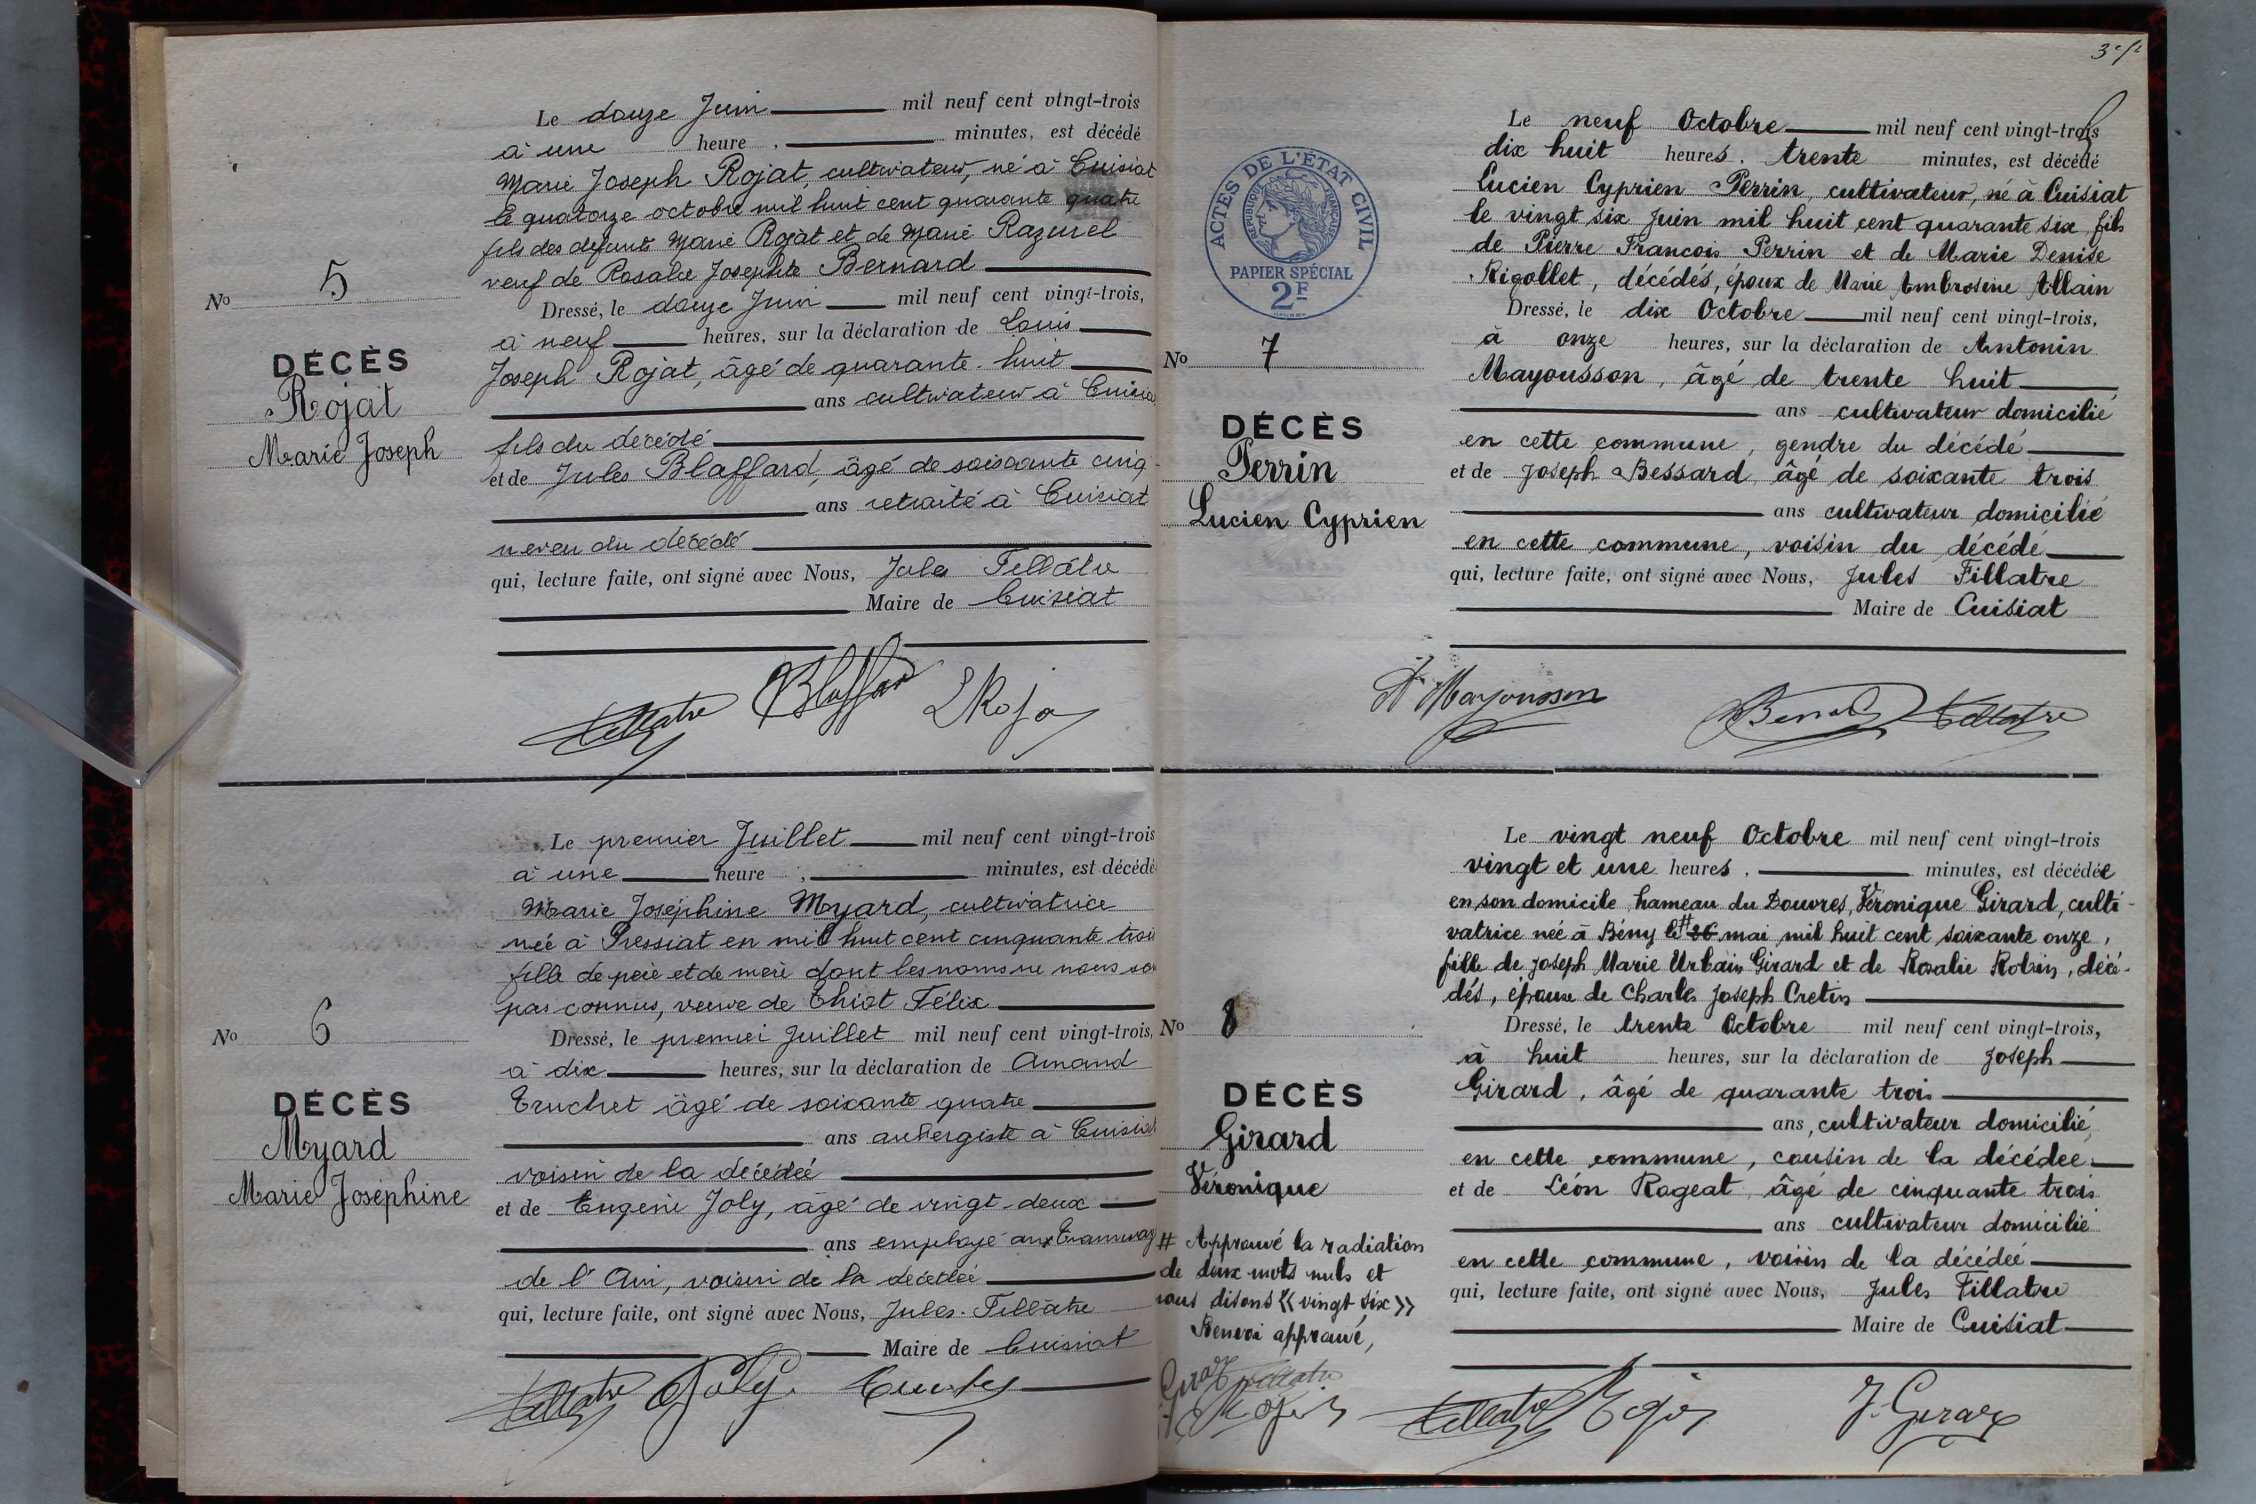 Le douze Juin mil neuf cent vingt-trois
à une heure, minutes, est décédé
Marie Joseph Rojat, cultivateur, né à Cuisiat
le quatorze octobre mil huit cent quarante quatre
fils des défunts Marie Rojat et de Marie Razurel
veuf de Rosalie Josephte Bernard
No 5
Dressé, le douze Juin mil neuf cent vingt-trois,
à neuf heures, sur la déclaration de Louis
DÉCÈS
Rojat
Marie Joseph
Joseph Rojat, âgé de quarante-huit
ans cultivateur à Cuisiat
fils du décédé
et de Jules Blaffard, âgé de soixante cinq
ans retraité à Cuisiat
neveu du décédé
qui, lecture faite, ont signé avec Nous, Jules Fillâtre
Maire de Cuisiat
Fillatre Blaffard L Roja
Le premier Juillet mil neuf cent vingt-trois
à une heure, minutes, est décédé
Marie Joséphine Myard, cultivatrice
née à Pressiat en mil huit cent cinquante trois
fille de père et de mère dont les noms ne nous so
pas connus, veuve de Thiot Félix
No 6
Dressé, le premier Juillet mil neuf cent vingt-trois,
à dix heures, sur la déclaration de Amand
DÉCÈS
Myard
Marie Joséphine
Truchet âgé de soixante quatre
ans aubergiste à Cuisiat
voisin de la décédée
et de Eugène Joly, âgé de vingt-deux
ans employé aux Tramway
de l'Ain, voisin de la décédée
qui, lecture faite, ont signé avec Nous, Jules Fillâtre
Maire de Cuisiat
Fillatre Joly
ACTES DE L'ÉTAT CIVIL
REPUBLIQUE FRANÇAISE
PAPIER SPÉCIAL
2F
Le neuf Octobre mil neuf cent vingt-trois
dix huit heures. trente minutes, est décédé
Lucien Cyprien Perrin, cultivateur, né à Cuisiat
le vingt six Juin mil huit cent quarante six, fils
de Pierre Francois Perrin et de Marie Denise
Rigollet, décédés, époux de Marie Ambrosine Allain
Dressé, le dix Octobre mil neuf cent vingt-trois,
No 7
à onze heures, sur la déclaration de Antonin
DÉCÈS
Perrin
Lucien Cyprien
Mayousson, âgé de trente huit
ans cultivateur domicilié
en cette commune, gendre du décédé
et de Joseph Bessard âgé de soixante trois
ans cultivateur domicilié
en cette commune, voisin du décédé
qui, lecture faite, ont signé avec Nous, Jules Fillatre
Maire de Cuisiat
A Mayousson Fillatre
Le vingt neuf Octobre mil neuf cent vingt-trois
vingt et une heures. minutes, est décédée
en son domicile hameau du Douvres, Véronique Girard, culti-
vatrice née à Bény le # 26 mai mil huit cent soixante onze,
fille de Joseph Marie Urbain Girard et de Rosalie Robin, décé-
dés, épouse de Charles Joseph Cretin
No 8
Dressé, le trente Octobre mil neuf cent vingt-trois,
à huit heures, sur la déclaration de Joseph
DÉCÈS
Girard
Véronique
Girard, âgé de quarante trois
ans, cultivateur domicilié
en cette commune, cousin de la décédée
et de Léon Rageat âgé de cinquante trois
ans cultivateur domicilié
en cette commune, voisin de la décédée
qui, lecture faite, ont signé avec Nous, Jules Fillatre
Maire de Cuisiat
# Approuvé la radiation
de deux mots nuls et
nous disons « vingt six »
Renvoi approuvé,
Fillatre J. Girard